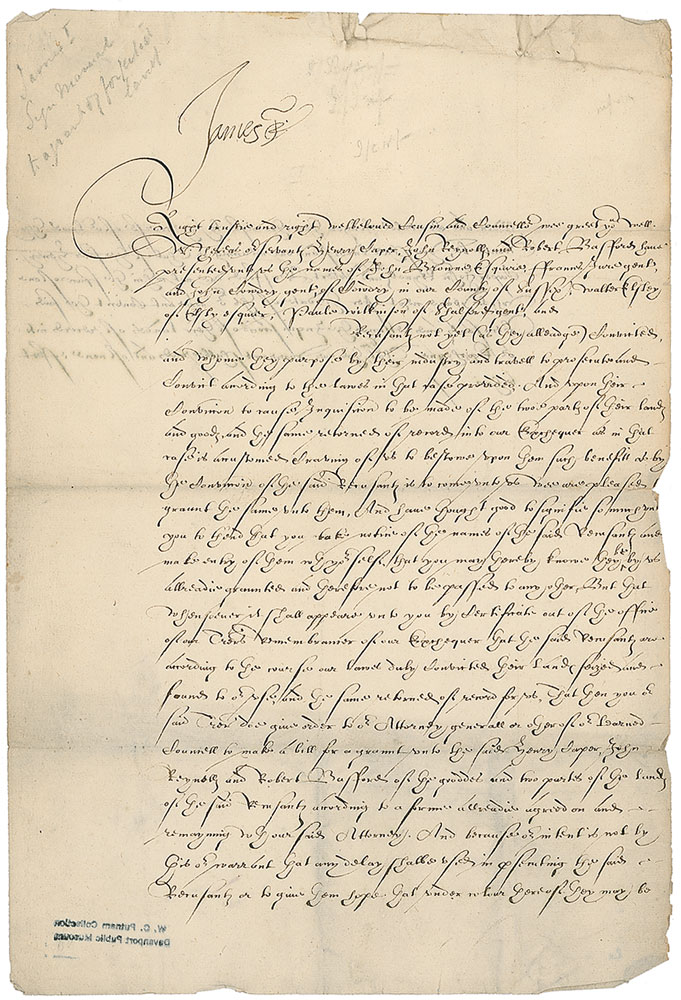 James I
Sign Manual
to a grant of forfeited
land
James R
Right trustie and right welbeloved Cousin and Councello^r wee greet yo^u well.
Whereas o^r servants Henry Japer, John Reynolls and Robert Bafford have
presented unto us the names of John Browne Esquire, ffrancis gent,
and John gent, of in our County of Sussex, Walter
of esquier, Paule Wilkinson of gent, and
Recusants not yet (as they alleadge) Convicted,
and whome they purpose by their industry and travell to prosecute and
Convict according to the lawes in that case provided. And upon their
Conviction to cause Inquisition to be made of the two parts of their lands
and goods, and the same returned of record into our Exchequer as in that
case is accustomed Craving of us to bestowe upon them such benefitt as by
the Conviction of the said Recusants is to come unto us wee are pleased
graunt the same unto them, And have thought good to signifie so much unto
you to thend that you take notice of the names of the said Recusants and
make entry of them wth yo^r self, that you may thereby knowe they be by us
allreadie graunted and therefore not to be passed to any other, But that
whensoever it shall appeare unto you by Certificate out of the office
of our Tre^rs Remembrancer of our Exchequer that the said Recusants are
according to the course our lawes duly Convicted their lands seized and
found to o^r use, and the same returned of record for us, That then you o^r
said Tre^r doe give order to o^r Attorney generall or other of o^r learned
Councell to make a bill for a graunt unto the said Henry Japer, John
Reynolls and Robert Bafford of the goodes and two partes of the lands
of the said Recusants according to a forme allreadie agreed on and
remayning wth our said Attorney. And because o^r intent is not by
this o^r warrant that any delay shalbe used in p̄senting the said
Recusants or to give them hope that under colour hereof they may be
W. C. Putnam Collection
Davenport Public Museum